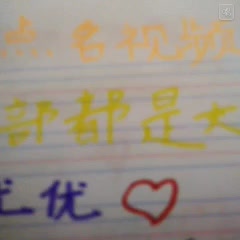 点名视频
部都是大
优优